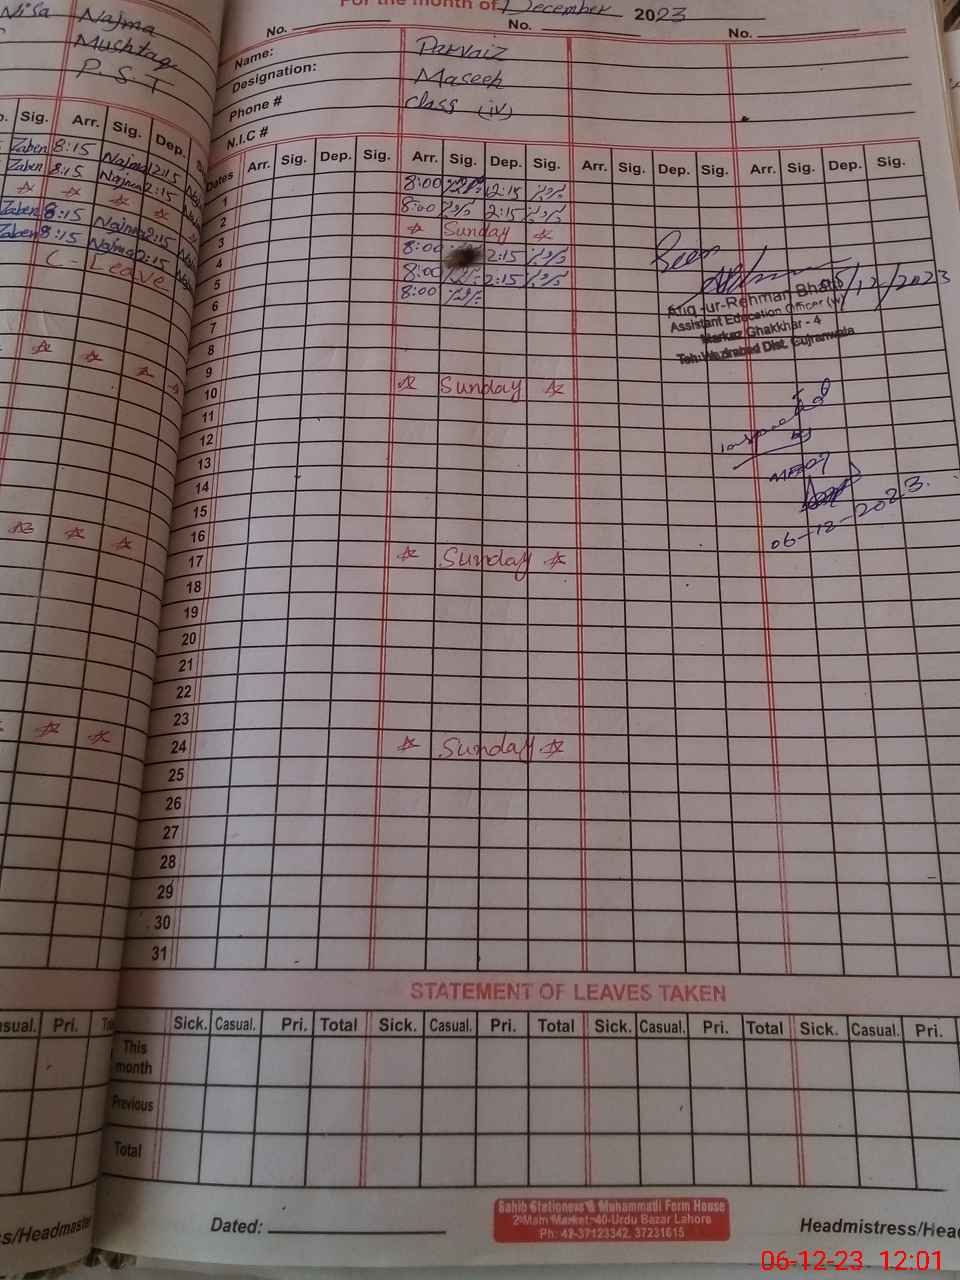 For the month of December 2023
No. No. No.
Name: Parvaiz
Designation: Maseeh
Phone # class (iv)
N.I.C #
Nisa Najma
Mushtaq
P.S.T
Sig. Arr. Sig. Dep.
Zaben 8:15 Najma 12:15
Zaben 8:15 Najma 12:15
Zaben 8:15 Najma 2:15
Zaben 8:15 Najma 2:15
C - Leave
Dates Arr. Sig. Dep. Sig. Arr. Sig. Dep. Sig. Arr. Sig. Dep. Sig. Arr. Sig. Dep. Sig.
1 8:00 پرویز 12:15 پرویز
2 8:00 پرویز 2:15 پرویز
3 Sunday
4 8:00 2:15 پرویز
5 8:00 پرویز 2:15 پرویز
6 8:00 پرویز
7
8
9
10 Sunday
11
12
13
14
15
16
17 Sunday
18
19
20
21
22
23
24 Sunday
25
26
27
28
29
30
31
Seen
05/12/2023
Atiq-ur-Rehman Bhatti
Assistant Education Officer (W)
Markaz Ghakkhar - 4
Teh: Wazirabad Dist. Gujranwala
inspected
by
06-12-2023.
STATEMENT OF LEAVES TAKEN
Casual. Pri. Sick. Casual. Pri. Total Sick. Casual. Pri. Total Sick. Casual. Pri. Total Sick. Casual. Pri.
This month
Previous
Total
Dated:
Sahib Stationers & Muhammadi Form House
2-Main Market, 40-Urdu Bazar Lahore
Ph: 42-37123342, 37231615
Headmistress/Head
06-12-23 12:01